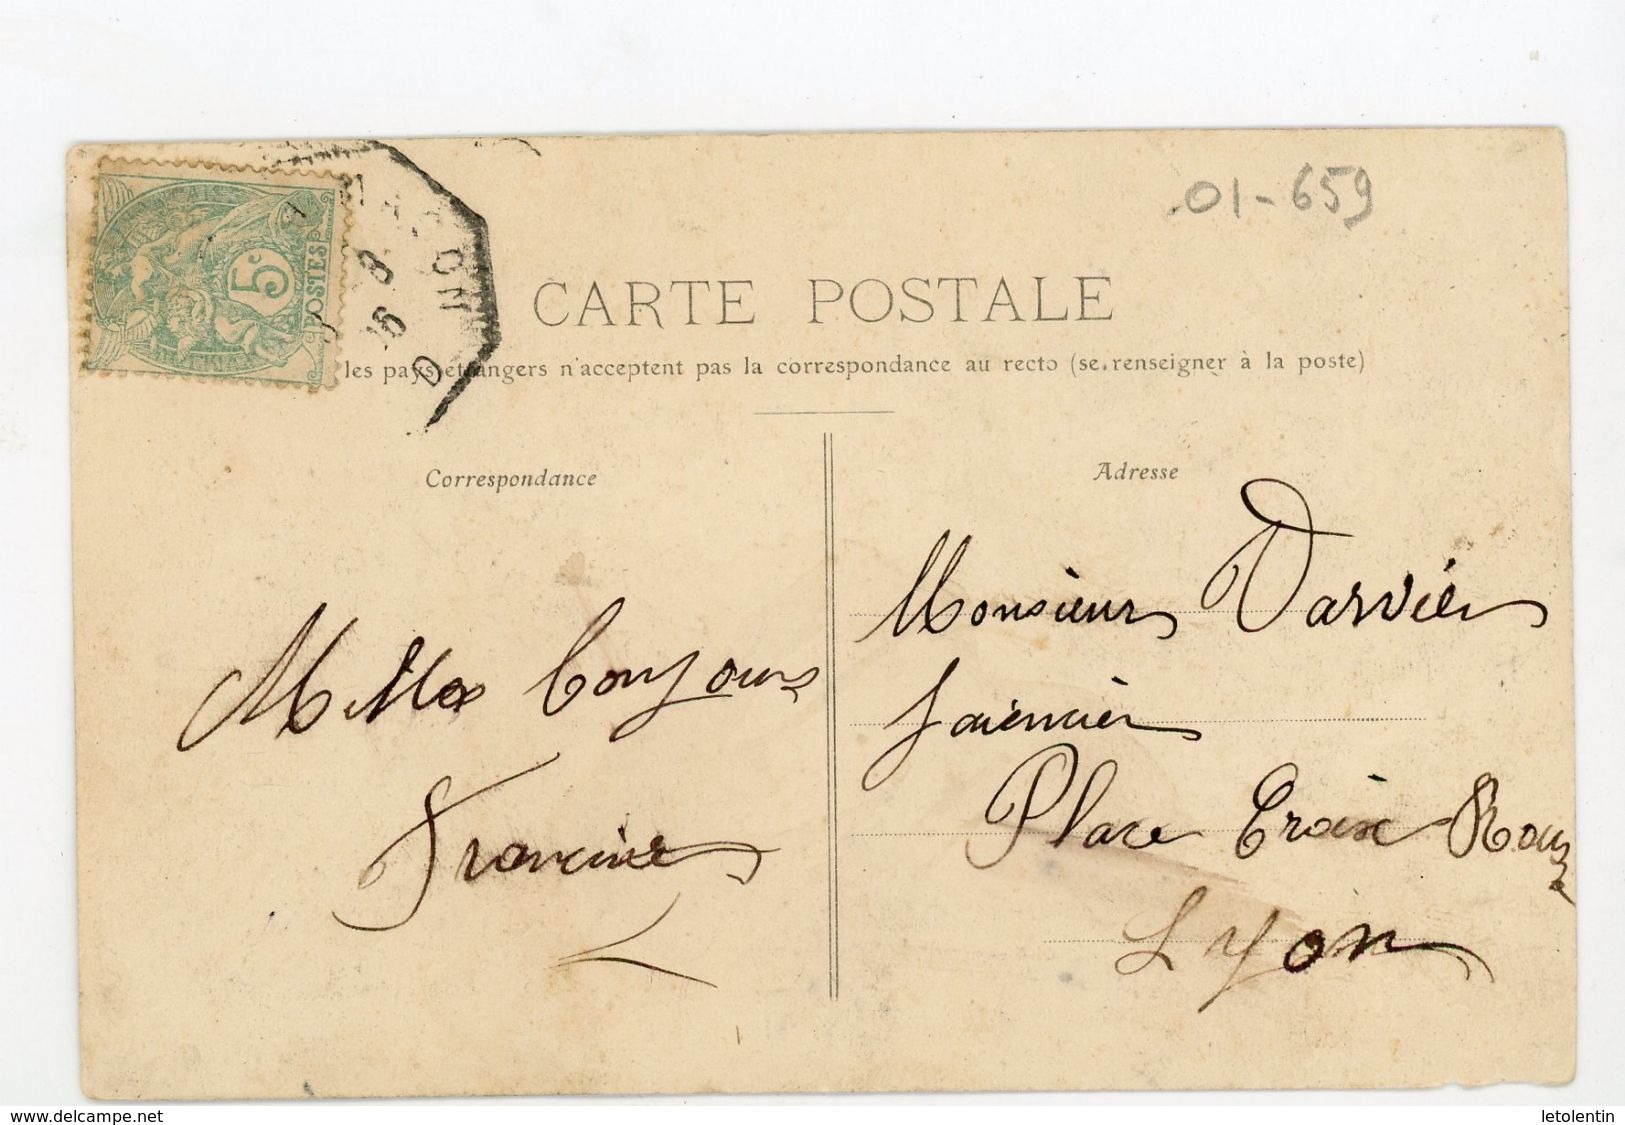 01-659
5c
POSTES
A MACON
8
06
D
CARTE POSTALE
les pays étrangers n'acceptent pas la correspondance au recto (se renseigner à la poste)
Correspondance
Adresse
Monsieur Darvier
faiencier
Place Croix Rouss
Lyon
Mille bonjours
Francine
www.delcampe.net
letolentin